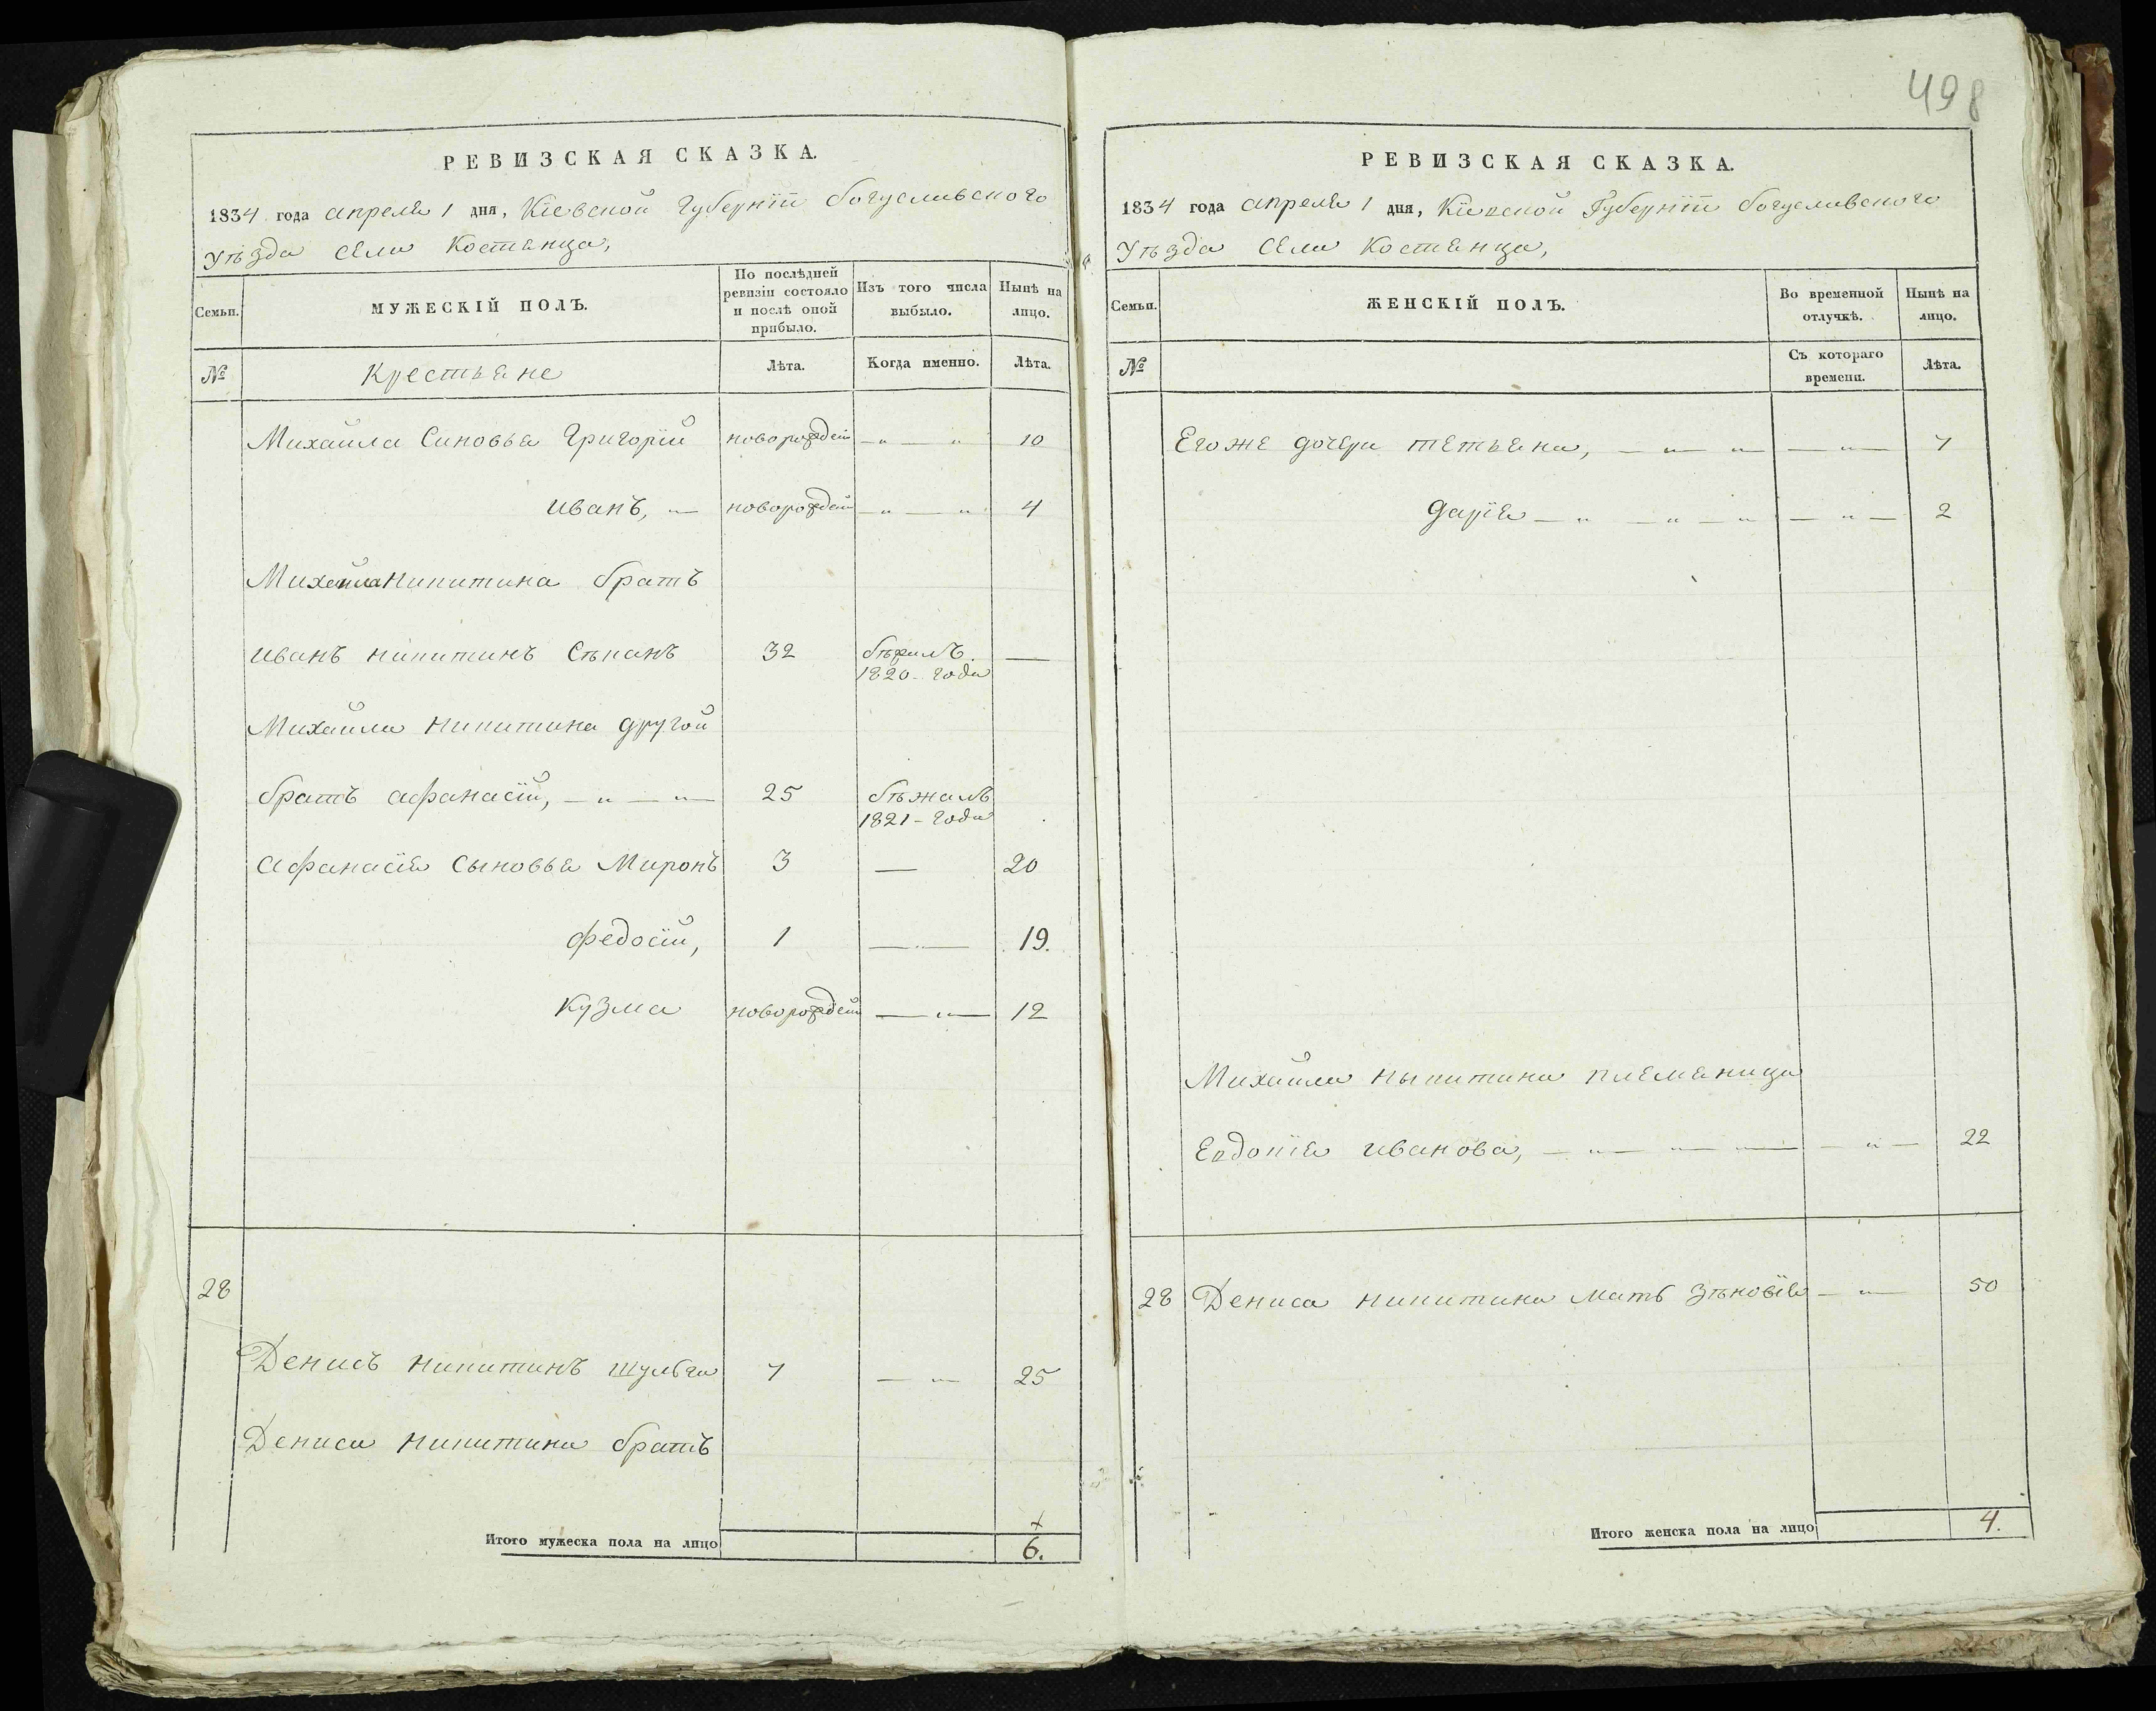 498
РЕВИЗСКАЯ СКАЗКА.
1834 года апреля 1 дня, Кіевской Губерніи богуславского
уѣзда села Костянца,
Семьи. МУЖЕСКІЙ ПОЛЪ. По послѣдней ревизіи состояло и послѣ оной прибыло. Изъ того числа выбыло. Нынѣ на лицо.
№ Крестьяне Лѣта. Когда именно. Лѣта.
Михайла Синовья Григорій новорождей 10
иванъ, новорождей 4
Михайла Никитина братъ
иванъ никитинъ 32 1820 года
Михайла никитина другой
братъ афанасій, 25 бѣжалъ 1821 года
афанасія сыновья Миронъ 3 — 20
федосій, 1 — 19.
Кузма новорождей — 12
28
Денисъ никитинъ шульга 7 — 25
Дениса никитина братъ
Итого мужеска пола на лицо 6.
РЕВИЗСКАЯ СКАЗКА.
1834 года апреля 1 дня, Кіевской Губерніи богуславского
уѣзда села Костянца,
Семьи. ЖЕНСКІЙ ПОЛЪ. Во временной отлучкѣ. Нынѣ на лицо.
№ Съ котораго времени. Лѣта.
Егоже дочери тетьяна, 7
дарія 2
Михайла ныкитина племяница
Евдокія иванова, 22
28 Дениса никитина мать Зѣновія 50
Итого женска пола на лицо 4.